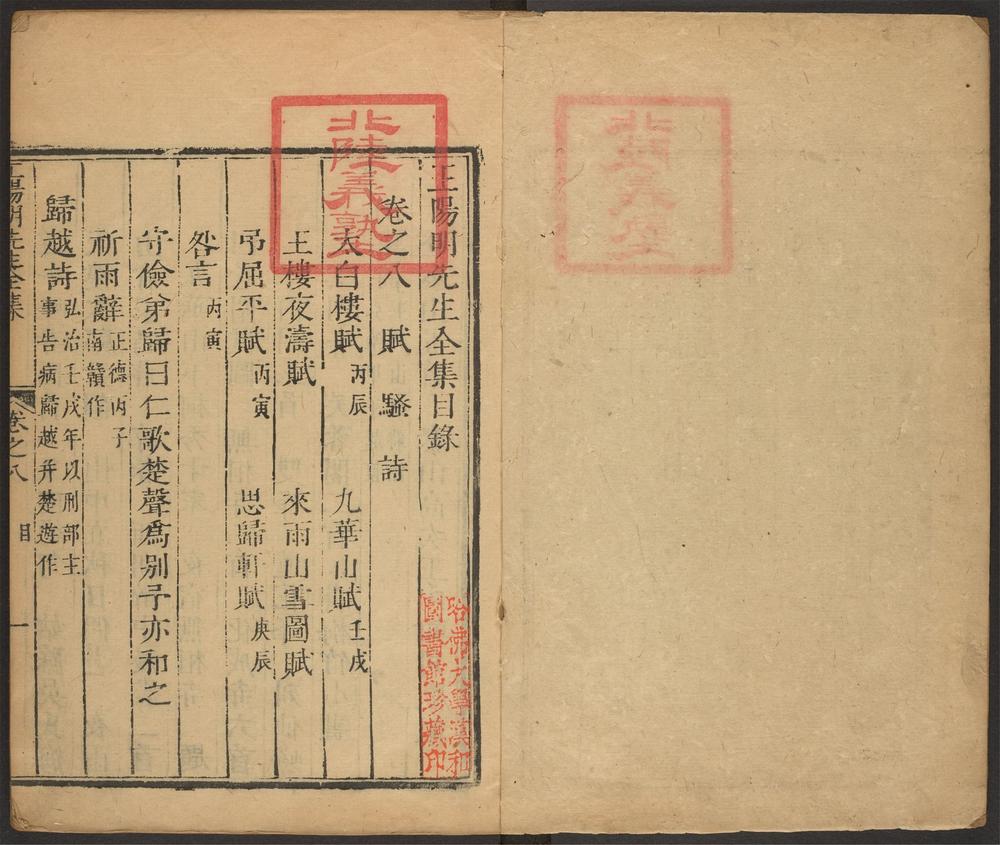 王陽明先生全集目錄
卷之八 賦 騷 詩
太白樓賦 丙辰 九華山賦 壬戌
王樓夜濤賦 來雨山雪圖賦
弔屈平賦 丙寅 思歸軒賦 庚辰
咎言 丙寅
守儉弟歸曰仁歌楚聲爲別予亦和之
祈雨辭 正德丙子南贛作
歸越詩 弘治壬戌年以刑部主事告病歸越并楚遊作
陽明先生全集 卷之八 目 一
北陸義塾
哈佛大學漢和
圖書館珍藏印